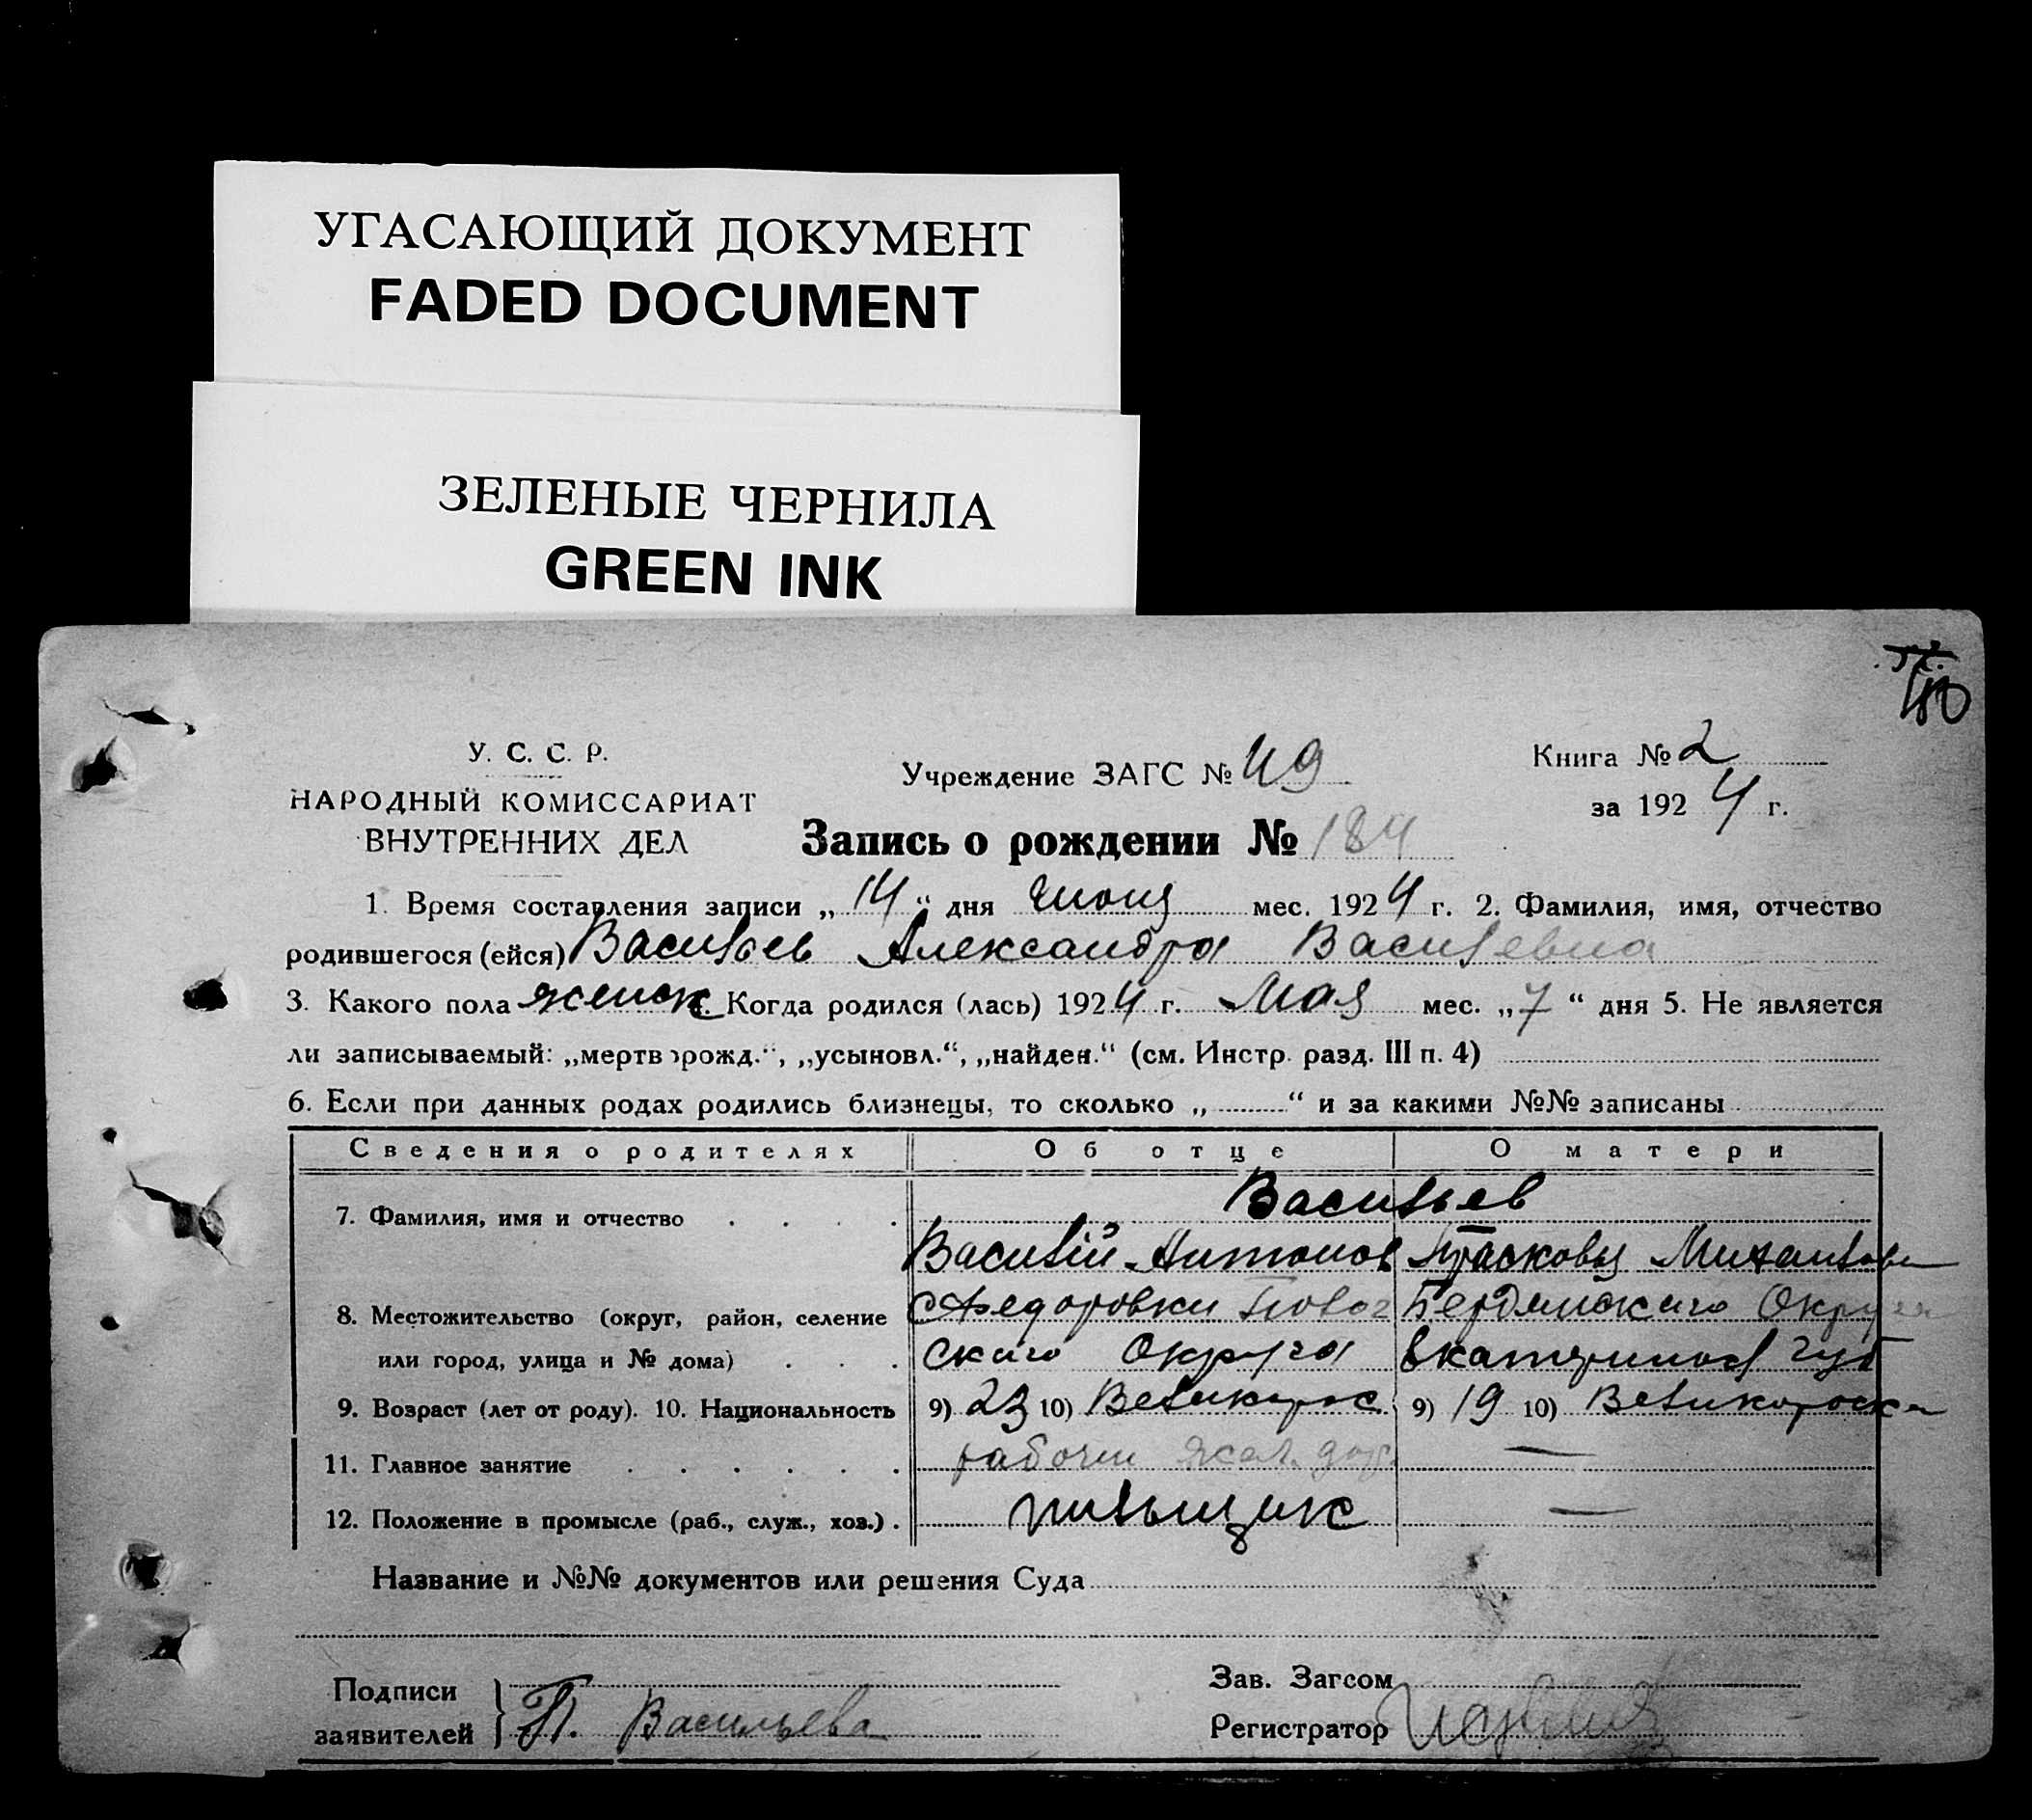 УГАСАЮЩИЙ ДОКУМЕНТ
FADED DOCUMENT
ЗЕЛЕНЫЕ ЧЕРНИЛА
GREEN INK
180
У. С. С. Р.
НАРОДНЫЙ КОМИССАРИАТ
ВНУТРЕННИХ ДЕЛ
Учреждение ЗАГС № 49
Книга № 2
за 1924 г.
Запись о рождении № 184
1. Время составления записи „14“ дня Июня мес. 1924 г. 2. Фамилия, имя, отчество
родившегося (ейся) Васильев Александра Васильевна
3. Какого пола женск. Когда родился (лась) 1924 г. Мая мес. „7“ дня 5. Не является
ли записываемый: „мертворожд.“, „усыновл.“, „найден.“ (см. Инстр. разд. III п. 4)
6. Если при данных родах родились близнецы, то сколько „ “ и за какими №№ записаны
Сведения о родителях Об отце О матери
7. Фамилия, имя и отчество Васильев
Василий Антонов Прасковья Михайлов
8. Местожительство (округ, район, селение Федоровки Бердянского Округа
или город, улица и № дома) ского Округа Екатеринос губ
9. Возраст (лет от роду). 10. Национальность 9) 23 10) Великорос 9) 19 10) Великороска
11. Главное занятие рабочий жел. дор. —
12. Положение в промысле (раб., служ., хоз.) пильщик —
Название и №№ документов или решения Суда
Подписи
заявителей } П. Васильева
Зав. Загсом
Регистратор